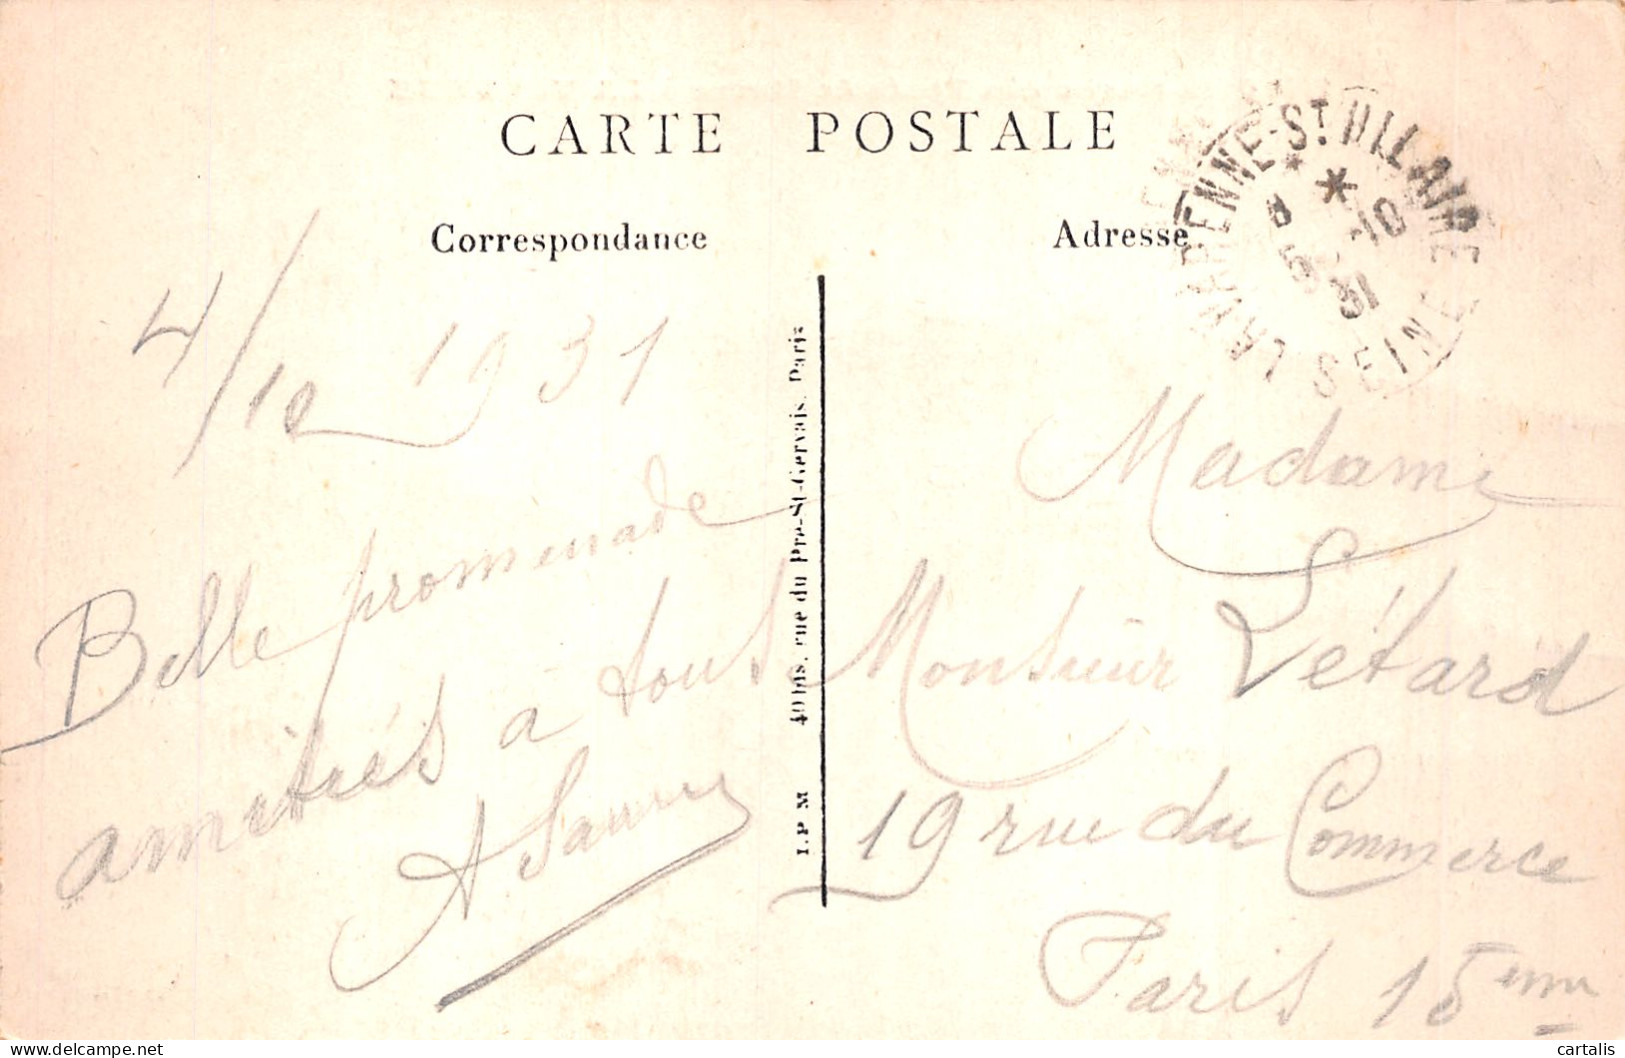 CARTE POSTALE
Correspondance
Adresse
LA VARENNE-ST HILAIRE
SEINE
4/10 1931
Belle promenade
amitiés à tous
I.P.M 40 bis, rue du Pré-St-Gervais, Paris
Madame
Monsieur Létard
19 rue du Commerce
Paris 15eme
cartalis